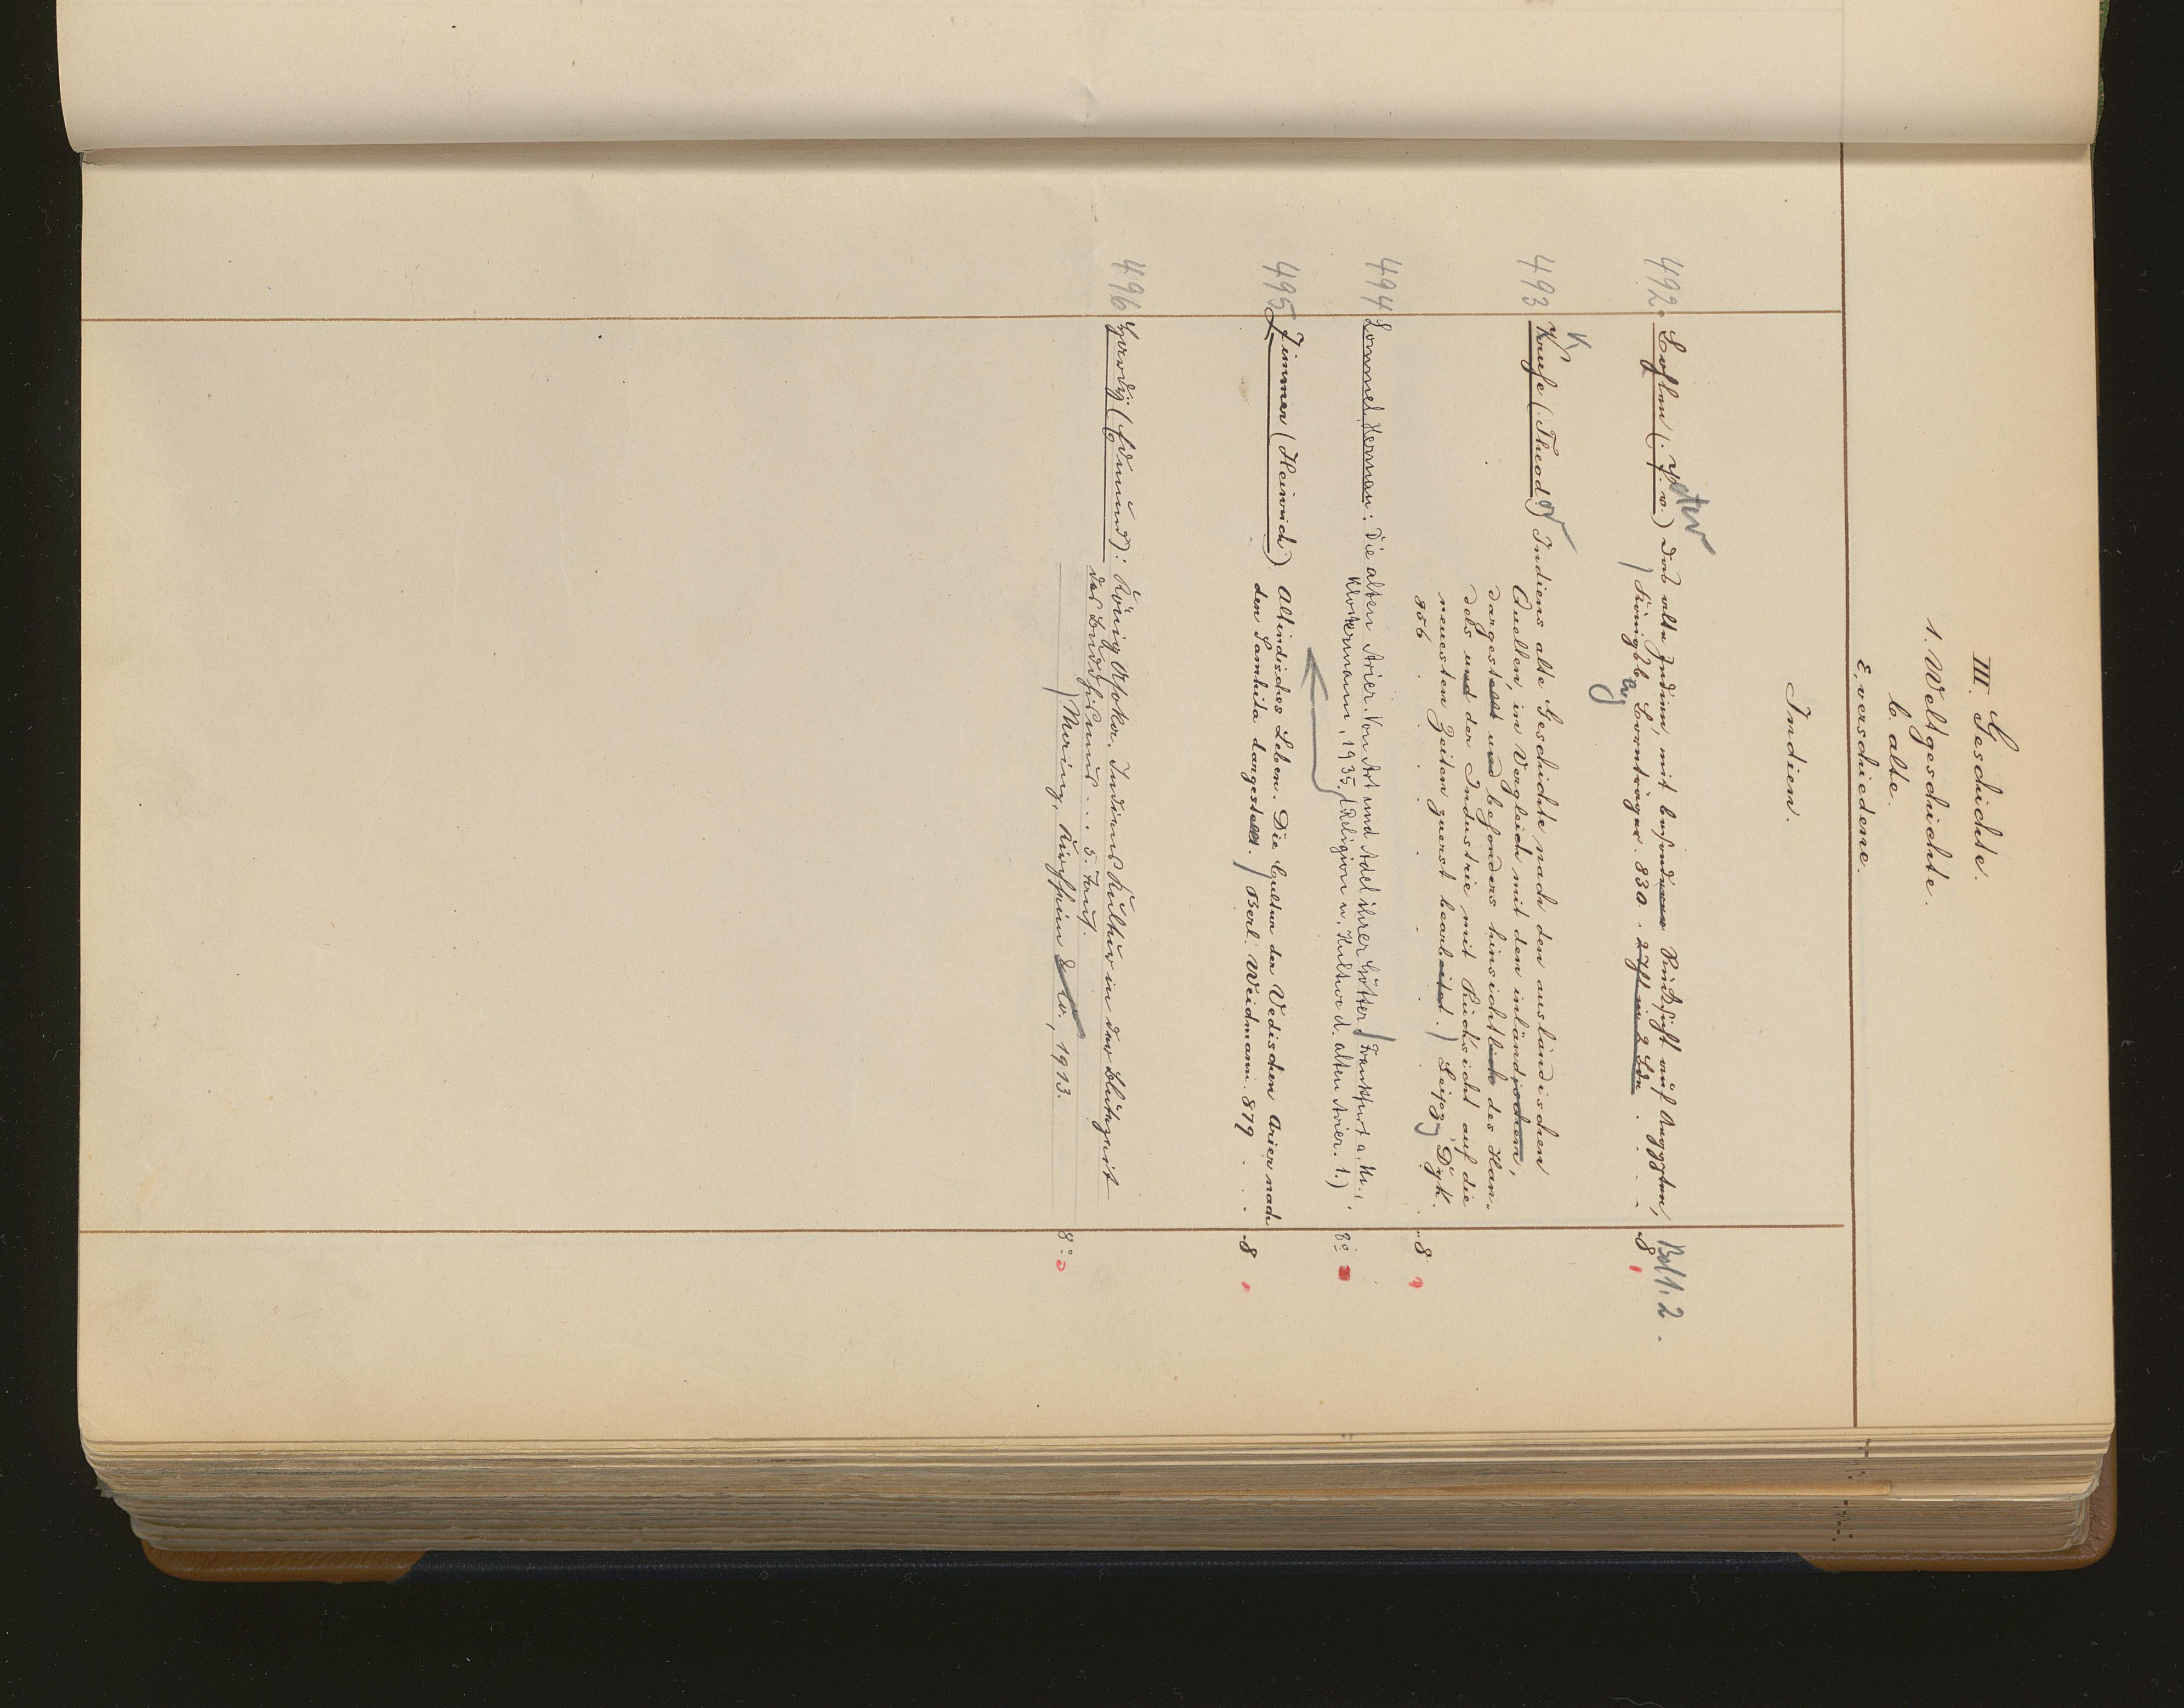 III. Geschichte.
1. Weltgeschichte.
b. alte.
ε, verschiedene.
Indien.
492. Bohlen (: P.eter v.) Das alte Indien, mit besonderer Rücksicht auf Aegypten, Bd 1. 2.
/ Königsbg Bornträger. 830. 2 Thle in 2 Bdn . . . 8
493 Kruse (: Theodor) Indiens alte Geschichte nach den ausländischen
Quellen, in Vergleich mit den inländischen,
dargestellt und besonders hinsichtlich des Han-
dels und der Industrie mit Rücksicht auf die
neuesten Zeiten zuerst bearbeitet. / Leipzg, Dyk.
856 . . . . . . 8
494 Lommel, Herman: Die alten Arier. Von Art und Adel ihrer Götter. / Frankfurt a. M.,
Klostermann, 1935. (Religion u. Kultur d. alten Arier. 1.) 8°
495 Zimmer (Heinrich) Altindisches Leben. Die Cultur der Vedischen Arier nach
den Samhita dargestellt. / Berl. Weidmann. 879 . . . 8
496 Hardy (Edmund): König Asoka. Indiens Kultur in der Blütezeit
des Buddhismus . . . 5. Taus.
/ Mainz, Kirchheim & Co., 1913. 8°